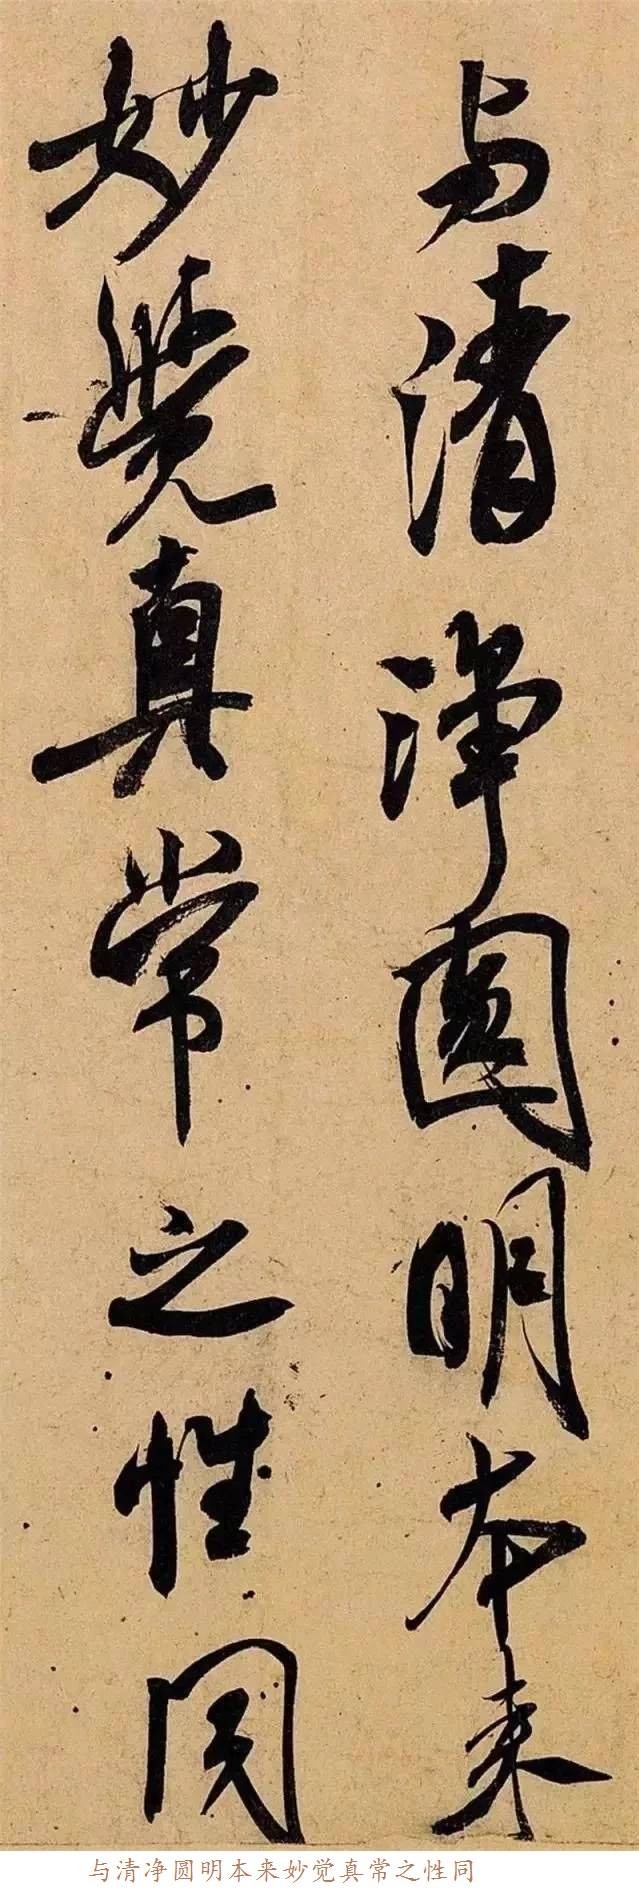 与清净圆明本来
妙觉真常之性同
与清净圆明本来妙觉真常之性同